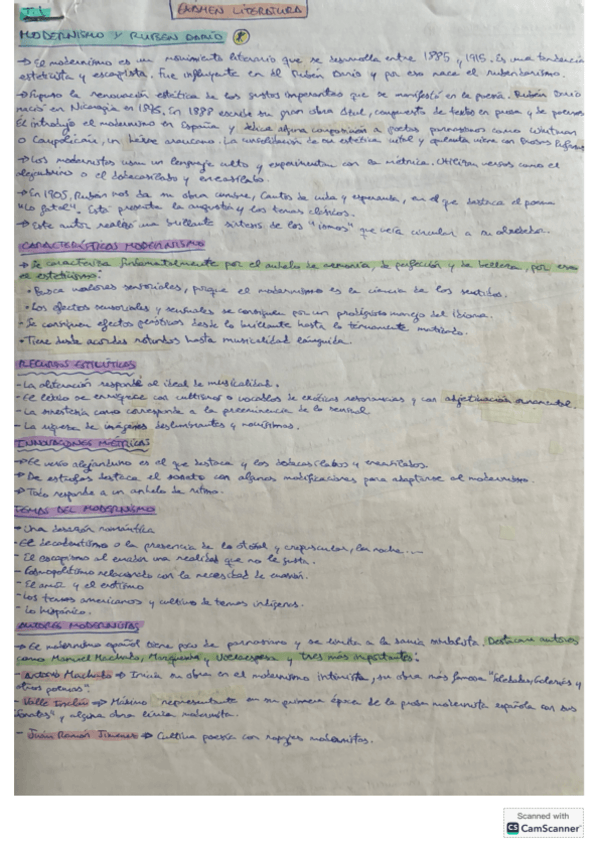 T.1 EXAMEN LITERATURA
MODERNISMO Y RUBÉN DARÍO
→ El modernismo es un movimiento literario que se desarrolla entre 1885 y 1915. Es una tendencia
esteticista y escapista. Fue influyente en él Rubén Darío y por eso nace el rubendarismo.
→ Supuso la renovación estética de los gustos imperantes que se manifestó en la poesía. Rubén Darío
nació en Nicaragua en En 1888 escribe su gran obra Azul, compuesto de textos en prosa y de poemas.
Él introdujo el modernismo en España y dedica alguna composición a poetas parnasianos como Whitman
o Caupolicán, un héroe araucano. La consolidación de su estética vital y opulenta viene con Prosas Profanas
→ Los modernistas usan un lenguaje culto y experimentan con la métrica. Utilizan versos como el
alejandrino o el dodecasílabo y eneasílabo.
→ En 1905, Rubén nos da su obra cumbre, Cantos de vida y esperanza, en el que destaca el poema
"Lo fatal". Está presente la angustia y los temas clásicos.
→ Este autor realizó una brillante síntesis de los "ismos" que veía circular a su alrededor.
CARACTERÍSTICAS MODERNISMO
→ Se caracteriza fundamentalmente por el anhelo de armonía, de perfección y de belleza, por eso
es esteticismo.
• Busca valores sensoriales, porque el modernismo es la ciencia de los sentidos.
• Los efectos sensoriales y sensuales se consiguen por un prodigioso manejo del idioma.
- Se consiguen efectos plásticos desde lo brillante hasta lo tenuamente matizado.
• Tiene desde acordes rotundos hasta musicalidad lánguida.
RECURSOS ESTILÍSTICOS
- La aliteración responde al ideal de musicalidad.
- El léxico se enriquece con cultismos o vocablos de exóticas resonancias y con adjetivación ornamental.
- La sinestesia como corresponde a la preeminencia de lo sensual
- La riqueza de imágenes deslumbrantes y novísimas.
INNOVACIONES MÉTRICAS
→ El verso alejandrino es el que destaca y los dodecasílabos y eneasílabos.
→ De estrofas destaca el soneto con algunas modificaciones para adaptarse al modernismo.
→ Todo responde a un anhelo de ritmo.
TEMAS DEL MODERNISMO
- Una desazón romántica
- El decadentismo o la presencia de lo otoñal y crepuscular, la noche...
- El escapismo al evadir una realidad que no le gusta.
- Cosmopolitismo relacionado con la necesidad de evasión.
- El amor y el erotismo
- Los temas americanos y cultivo de temas indígenas.
- Lo hispánico.
AUTORES MODERNISTAS
→ El modernismo español tiene poco de parnasiano y se limita a la simbolista. Destacan autores
como Manuel Machado, Marquina y Villaespesa y tres más importantes:
- Antonio Machado → Inicia su obra en el modernismo intimista, su obra más famosa "Soledades, Galerías y
otros poemas".
- Valle Inclán → Máximo representante en su primera época de la prosa modernista española con sus
"Sonatas" y alguna obra lírica modernista.
- Juan Ramón Jiménez → Cultiva poesía con ropajes modernistas.
Scanned with
CS CamScanner